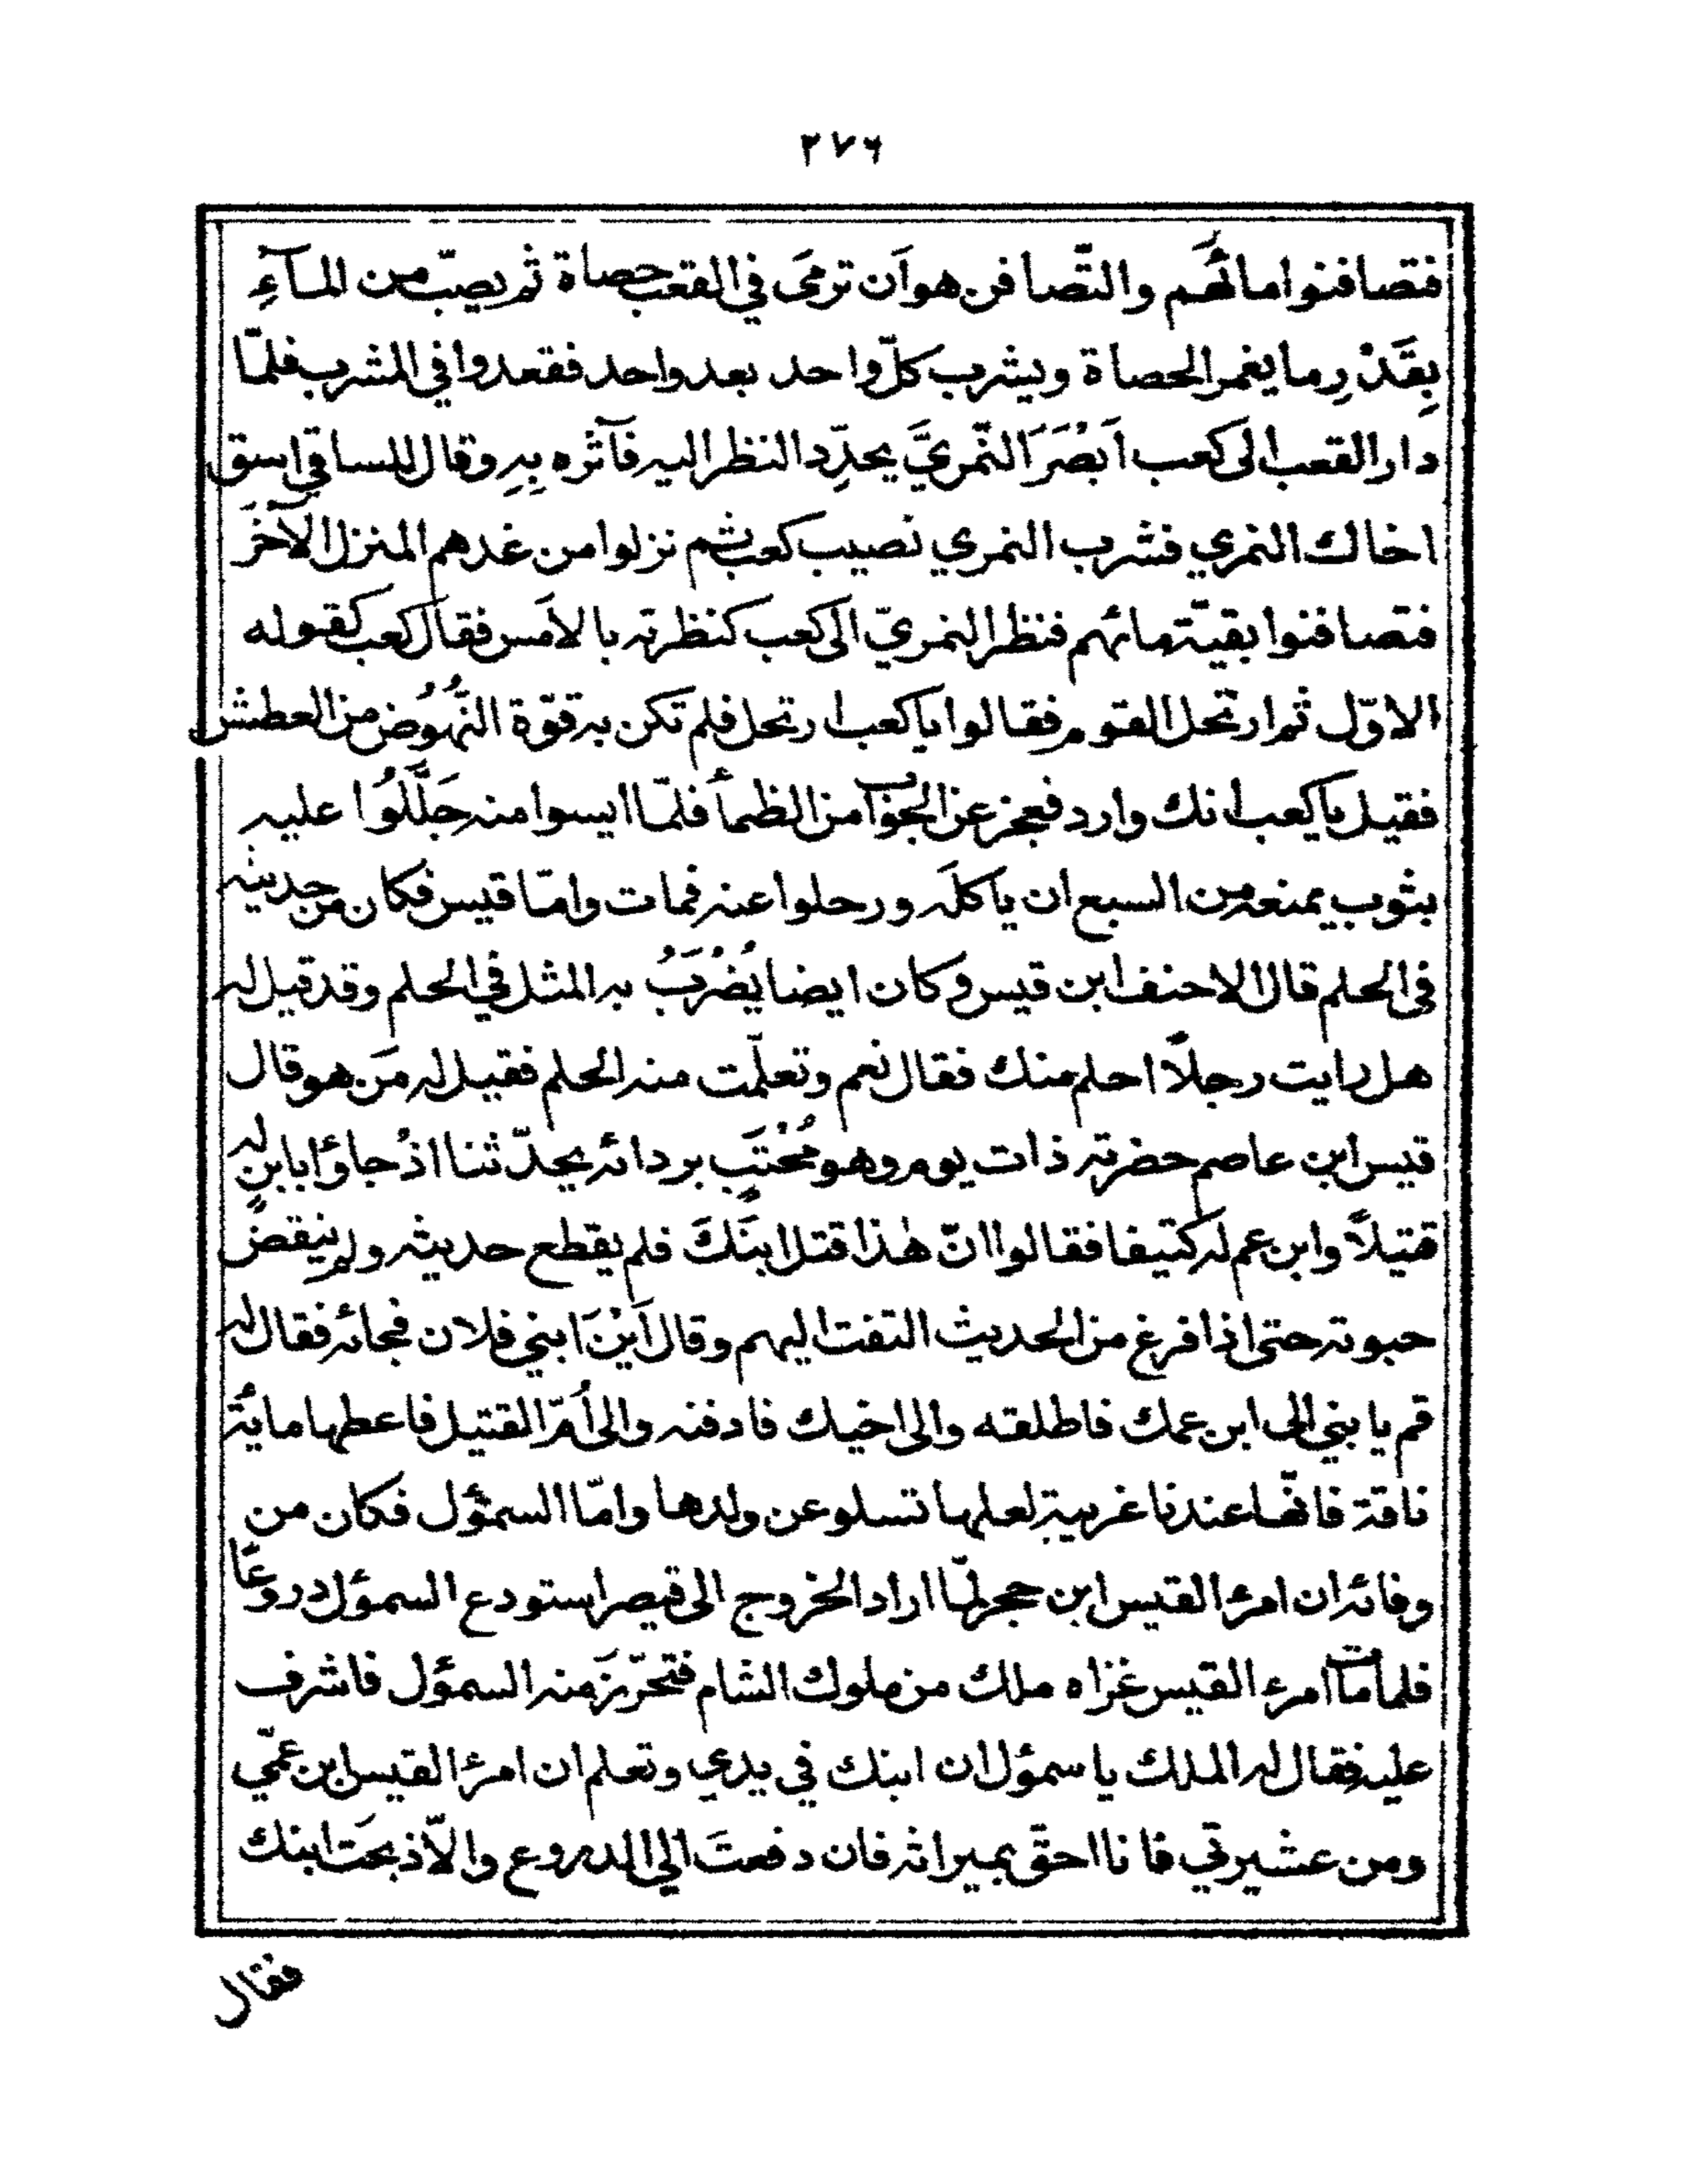 ٢٧٦
فتصافنوا مائَهُم والتّصافن هو اَن ترمىَ في القعب حصاة ثم يصبّ من المآءِ
بِقَدْرِ ما يغمر الحصاة ويشرب كلّ واحد بعد واحد فقعدوا في المشرب فلمّا
دار القعب الى كعب اَبْصَرَ النّمريَّ يحدِّد النظر اليه فَآثره بِهِ وقال للساقي اسق
اخاك النمري فشرب النمري نصيب كعب ثم نزلوا من غدهم المنزل الآخَرَ
فتصافنوا بقيّة مائهم فنظر النمريّ الى كعب كنظرته بالاَمس فقال كعب كقوله
الاوّل ثم ارتحل القوم فقالوا يا كعب ارتحل فلم تكن به قوّة النُّهُوض من العطش
فقيل يا كعب انك وارد فعجز عن الجواب من الظمأ فلمّا ايسوا منه جَلَّلُوا عليه
بثوب يمنعه من السبع ان ياكلَه ورحلوا عنه فمات وامّا قيس فكان من حديثه
في الحلم قال الاحنف ابن قيس وكان ايضا يُضْرَبُ به المثل في الحلم وقد قيل له
هل رايت رجلًا احلم منك فقال نعم وتعلّمت منه الحلم فقيل له مَن هو قال
قيس ابن عاصم حضرته ذات يوم وهو مُحْتَبٍ بردائه يحدّثنا اذْ جاؤا بابنٍ له
قتيلًا وابن عم له كتيفا فقالوا انّ هٰذا قتل ابنَكَ فلم يقطع حديثه ولم ينقض
حبوته حتى اذا فرغ من الحديث التفت اليهم وقال اَيْنَ ابني فلان فجائه فقال له
قم يا بني الى ابن عمك فاطلقه والى اخيك فادفنه والى اُمّ القتيل فاعطها مايُة
ناقة فانّها عندنا غريبة لعلها تسلو عن ولدها وامّا السمؤل فكان من
وفائه ان امرئ القيس ابن حجر لمّا اراد الخروج الى قيصر استودع السمؤل دروعًا
فلما مات امرء القيس غزاه ملك من ملوك الشام فتحرّزَ منه السمؤل فاشرف
عليه فقال له الملك يا سمؤل ان ابنك في يدي وتعلم ان امرئ القيس ابن عمّي
ومن عشيرتي فانا احقّ بميراثه فان دفعتَ الي الدروع والّا ذبحت ابنك
فقال